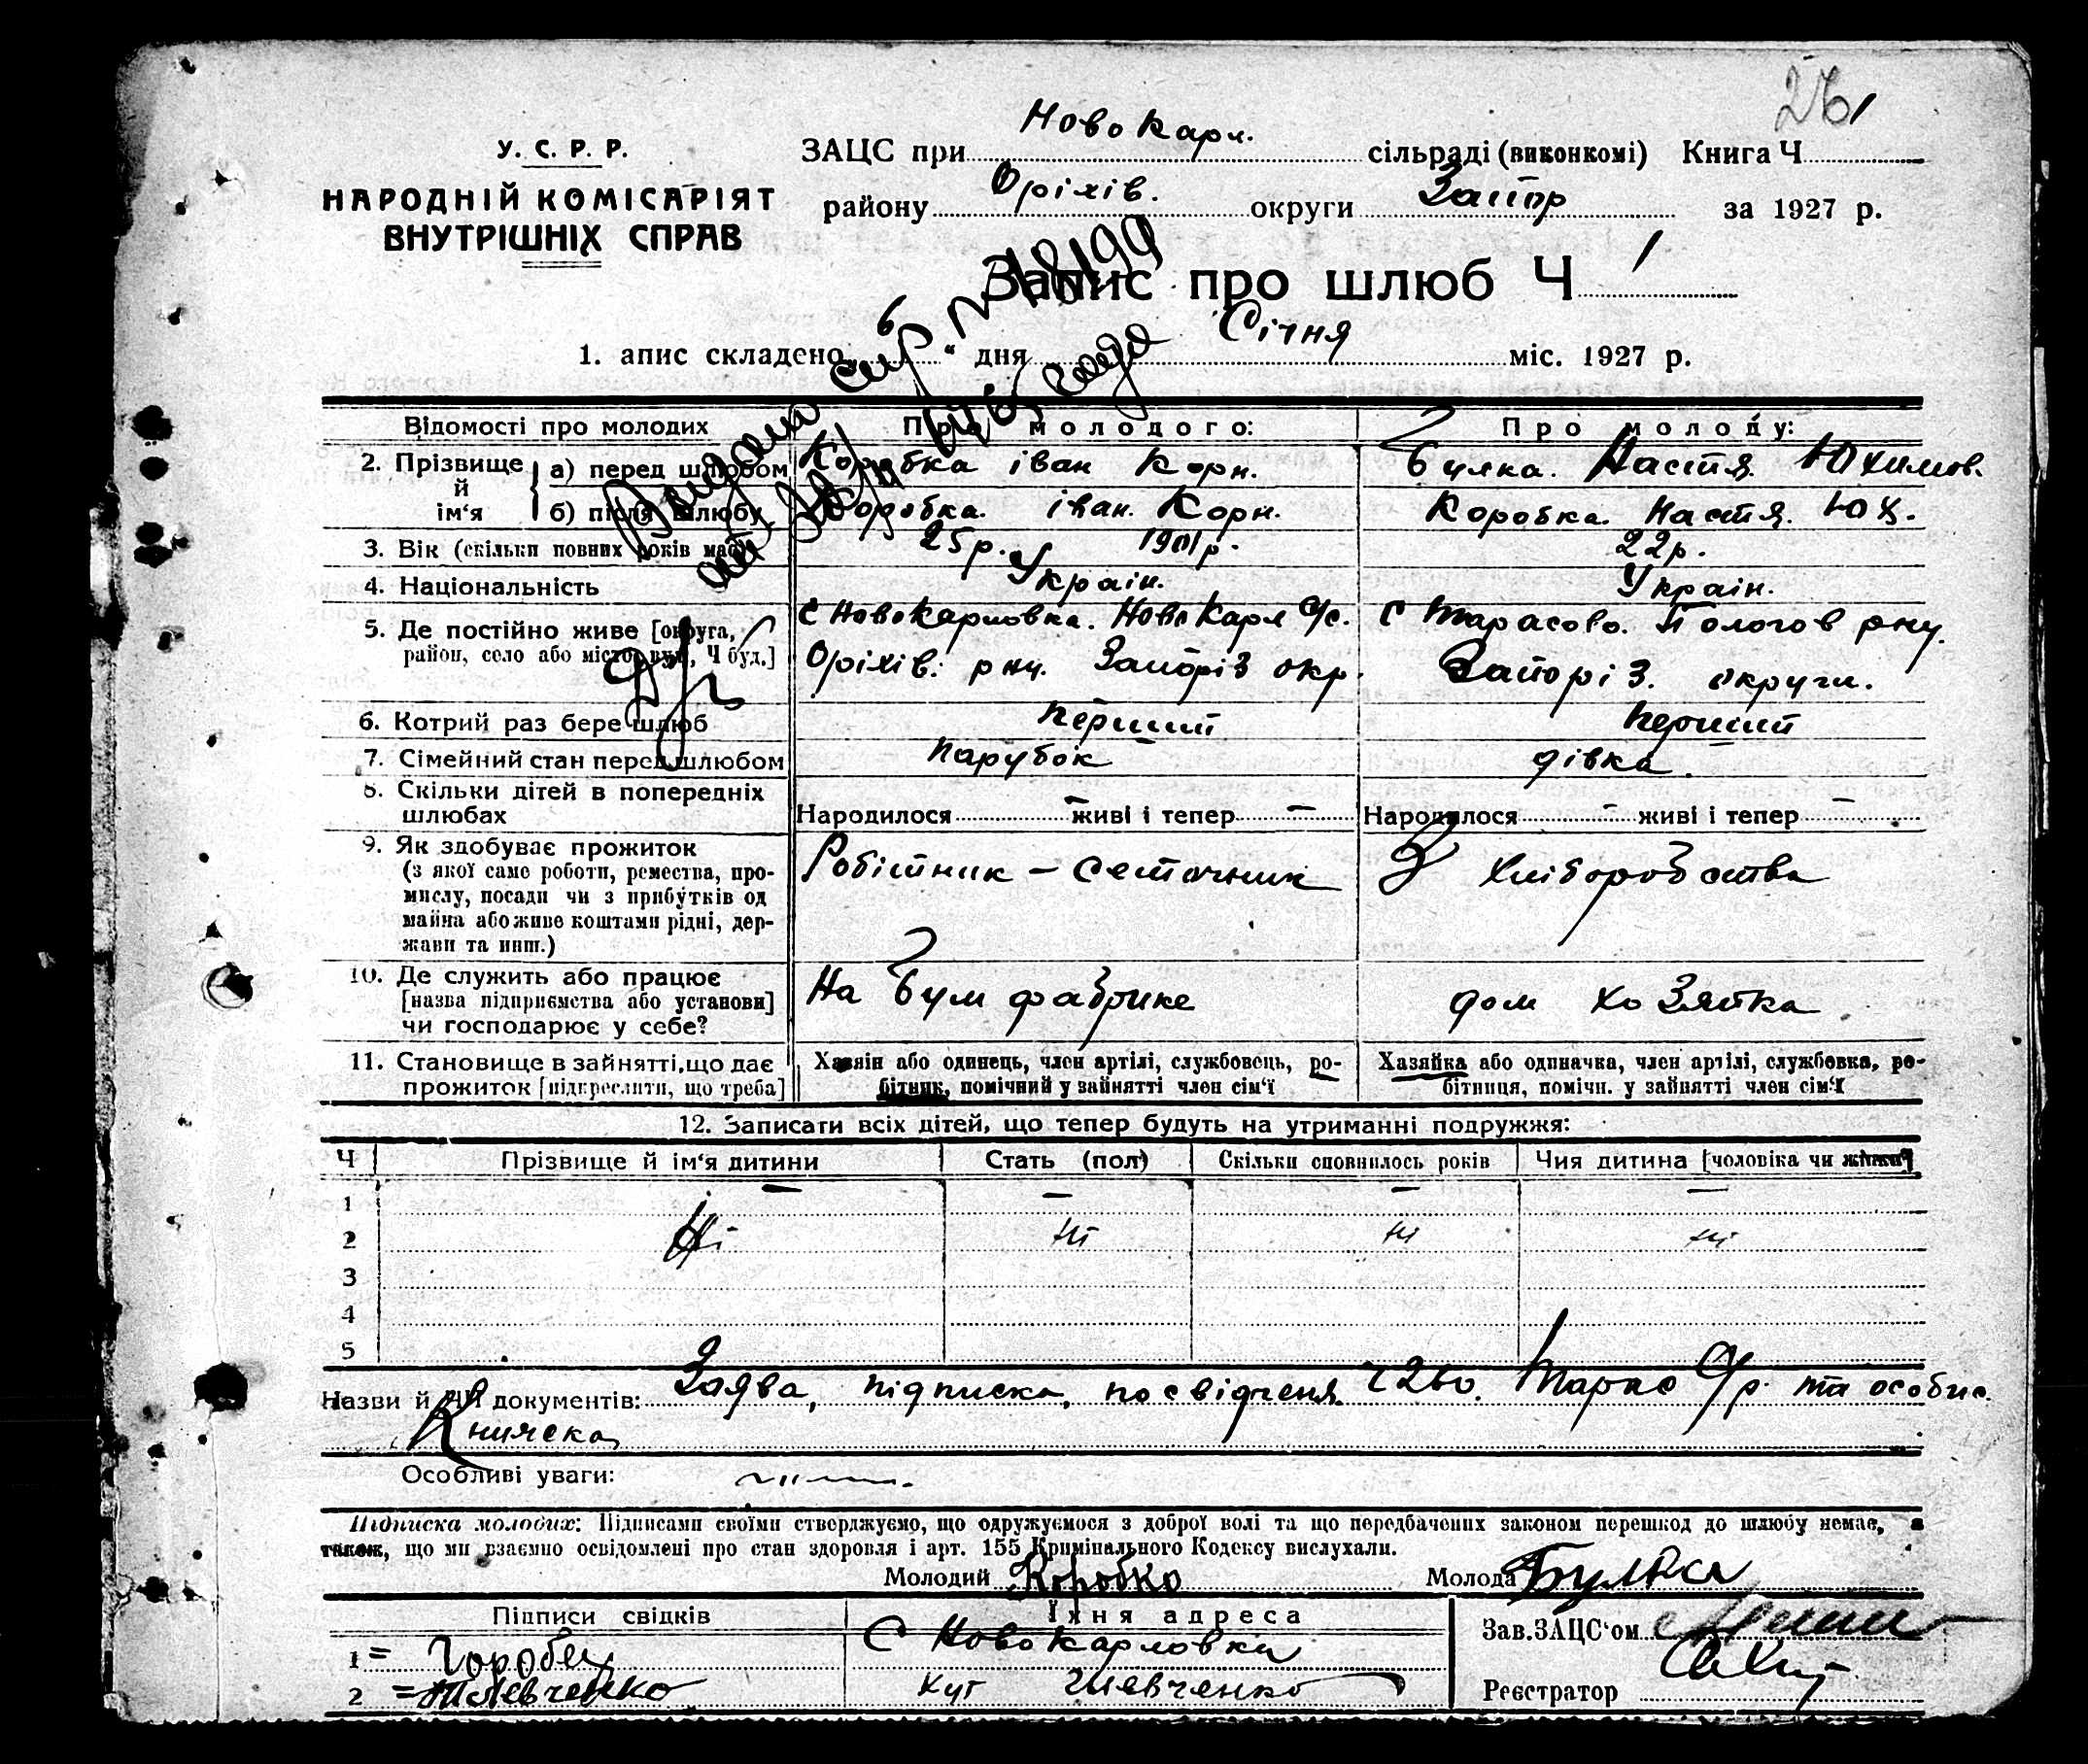 261
У. С. Р. Р.
НАРОДНІЙ КОМІСАРІЯТ
ВНУТРІШНІХ СПРАВ
ЗАЦС при НовоКарл. сільраді (виконкомі) Книга Ч
району Оріхів. округи Запор за 1927 р.
Запис про шлюб Ч 1
1. апис складено 6 “ дня Січня міс. 1927 р.
Відомості про молодих
Про молодого:
Про молоду:
2. Прізвище й ім‘я
а) перед шлюбом
Коробка іван Корн.
Булка. Настя Юхимов.
б) після шлюбу
Коробка. іван. Корн.
Коробка. Настя. Юх.
3. Вік (скільки повних років має)
25р. 1901р.
22р.
4. Національність
Україн.
Україн.
5. Де постійно живе [округа,
район, село або місто, вул, Ч буд.]
С НовоКарловка. НовоКарл С/с.
Оріхів. рну. Запоріз окр.
С Тарасово. Пологов рну.
Запоріз. округи.
6. Котрий раз бере шлюб
Перший
Перший
7. Сімейний стан перед шлюбом
Парубок
дівка.
8. Скільки дітей в попередніх
шлюбах
Народилося — живі і тепер —
Народилося — живі і тепер —
9. Як здобуває прожиток
(з якої само роботи, ремества, про-
мислу, посади чи з прибутків од
майна або живе коштами рідні, дер-
жави та инш.)
Робітник – сеточник
З хліборобства
10. Де служить або працює
[назва підприємства або установи]
чи господарює у себе?
На Бум фабрике
дом хозяйка
11. Становище в зайнятті, що дає
прожиток [підкреслити, що треба]
Хазяїн або одинець, член артілі, службовець, ро-
бітник, помічний у зайнятті член сім‘ї
Хазяйка або одиначка, член артілі, службовка, ро-
бітниця, помічн. у зайнятті член сім‘ї
12. Записати всіх дітей, що тепер будуть на утриманні подружжя:
Ч Прізвище й ім‘я дитини Стать (пол) Скільки сповнилось років Чия дитина [чоловіка чи жінки]
1 — — — —
2 Ні ні ні ні
3
4
5
Назви й ЧЧ документів: Заява, підписка, посвідченя Тарас С/р. та особис.
Книжска
Особливі уваги:
Підписка молодих: Підписами своїми стверджуємо, що одружуємося з доброї волі та що передбачених законом перешкод до шлюбу немає, а
також, що ми взаємно освідомлені про стан здоровля і арт. 155 Кримінального Кодексу вислухали.
Молодий Коробко Молода Булка
Підписи свідків
Їхня адреса
1 = Горобец
С НовоКарловка
2 = Шевченко
Кут Шевченко
Зав. ЗАЦС‘ом
Реєстратор